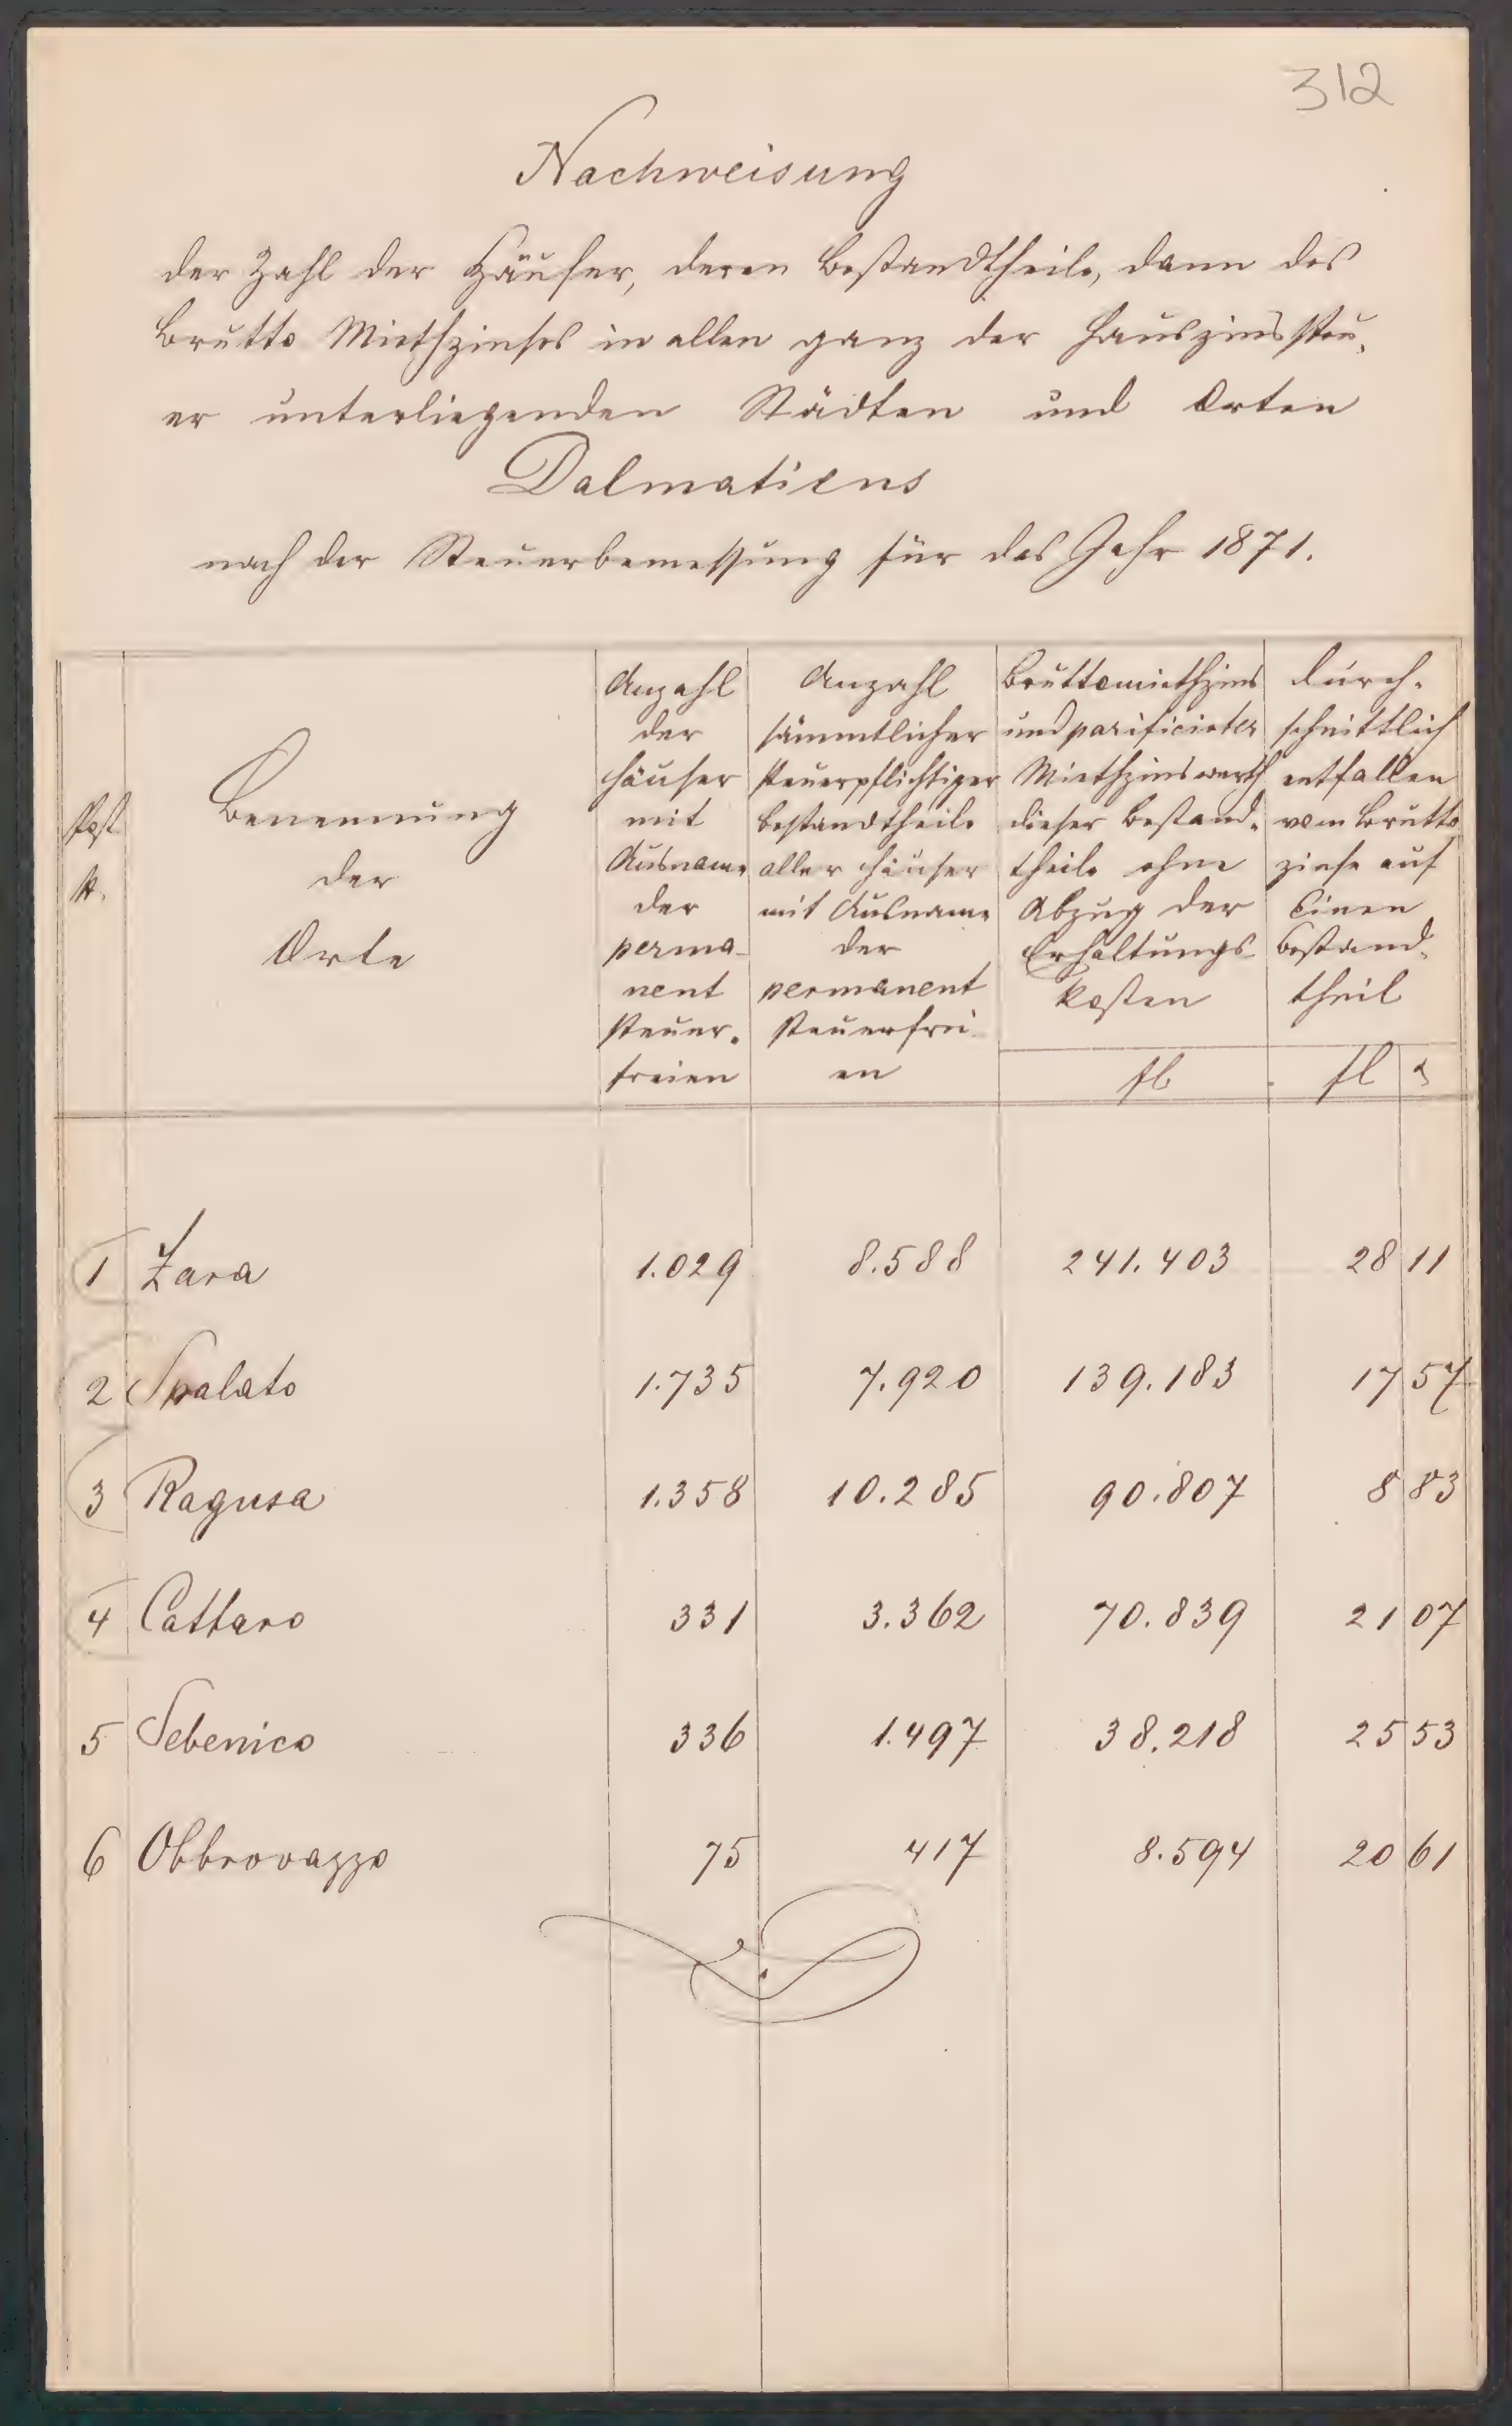 312
Nachweisung
der Zahl der Häuser, deren Bestandtheile, dann des
Brutto Miethzinses in allen ganz der Hauszinssteu-
er unterliegenden Städten und Orten
Dalmatiens
nach der Steuerbemessung für das Jahr 1871.
Post
N.
Benennung
der
Orte
Anzahl
der
Häuser
mit
Ausname
der
perma-
nent
steuer-
freien
Anzahl
sämmtlicher
steuerpflichtiger
Bestandtheile
aller Häuser
mit Ausname
der
permanent
steuerfrei-
en
Bruttomiethzins
und parificirter
Miethzinswerth
dieser Bestand-
theile ohne
Abzug der
Erhaltungs-
kosten
fl
durch-
schnittlich
entfallen
vom Brutto
zinse auf
Einen
Bestand-
theil
fl
1 Zara 1.029 8.588 241.403 28 11
2 Spalato 1.735 7.920 139.183 17 57
3 Ragusa 1.358 10.285 90.807 8 83
4 Cattaro 331 3.362 70.839 21 07
5 Sebenico 336 1.497 38.218 25 53
6 Obbrovazzo 75 417 8.594 20 61